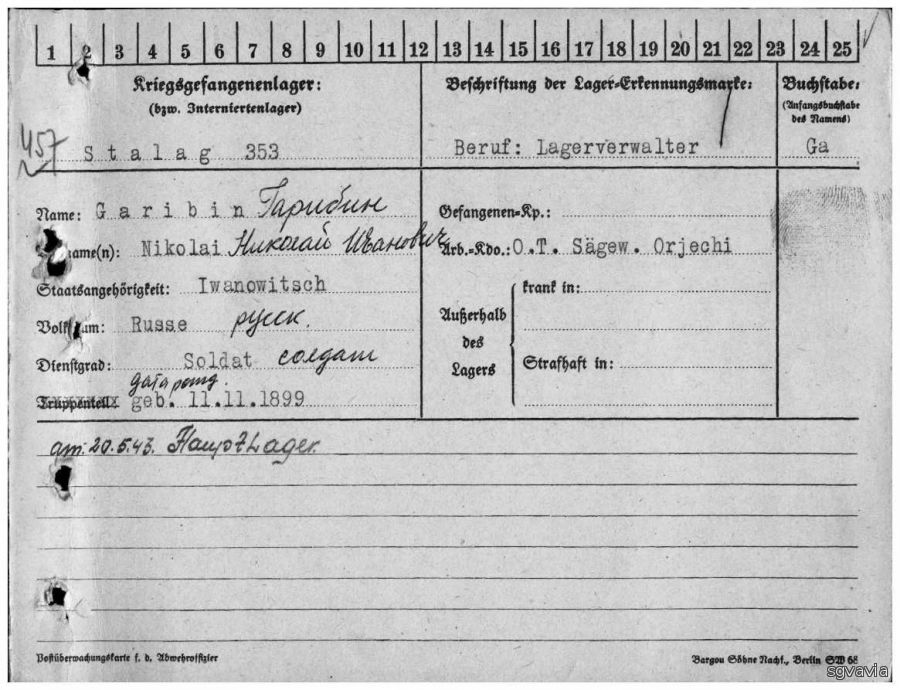 1 2 3 4 5 6 7 8 9 10 11 12 13 14 15 16 17 18 19 20 21 22 23 24 25
Kriegsgefangenenlager:
(bzw. Interniertenlager)
457
Stalag 353
Beschriftung der Lager-Erkennungsmarke:
Beruf: Lagerverwalter
Buchstabe:
(Anfangsbuchstabe
des Namens)
Ga
Name: Garibin Гарибин
ame(n): Nikolai Николай Иванович
Staatsangehörigkeit: Iwanowitsch
Volkstum: Russe русск.
Dienstgrad: Soldat солдат
дата рожд.
Truppenteil: geb. 11.11.1899
Gefangenen-Kp.:
Arb.-Kdo.: O.T. Sägew. Orjechi
Außerhalb
des
Lagers
krank in:
Strafhaft in:
am: 20.5.43. Hauptlager.
Postüberwachungskarte f. d. Abwehroffizier
Bargou Söhne Nachf., Berlin SW 68
sgvavia